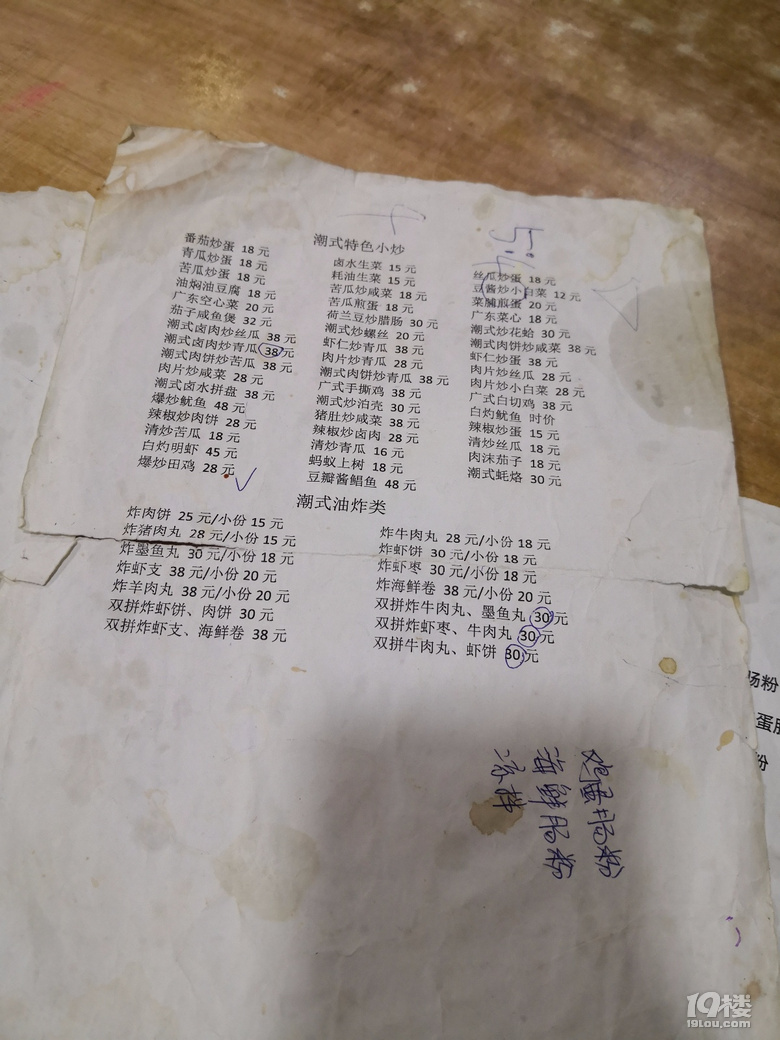 潮式特色小炒
番茄炒蛋 18 元
青瓜炒蛋 18 元
苦瓜炒蛋 18 元
油焖油豆腐 18 元
广东空心菜 20 元
茄子咸鱼煲 32 元
潮式卤肉炒丝瓜 38 元
潮式卤肉炒青瓜 38 元
潮式肉饼炒苦瓜 38 元
肉片炒咸菜 28 元
潮式卤水拼盘 38 元
爆炒鱿鱼 48 元
辣椒炒肉饼 28 元
清炒苦瓜 18 元
白灼明虾 45 元
爆炒田鸡 28 元
卤水生菜 15 元
耗油生菜 15 元
苦瓜炒咸菜 18 元
苦瓜煎蛋 18 元
荷兰豆炒腊肠 30 元
潮式炒螺丝 20 元
虾仁炒青瓜 38 元
肉片炒青瓜 28 元
潮式肉饼炒青瓜 38 元
广式手撕鸡 38 元
潮式炒泊壳 30 元
猪肚炒咸菜 38 元
辣椒炒卤肉 28 元
清炒青瓜 16 元
蚂蚁上树 18 元
豆瓣酱鲳鱼 48 元
丝瓜炒蛋 18 元
豆酱炒小白菜 12 元
菜脯煎蛋 20 元
广东菜心 18 元
潮式炒花蛤 30 元
潮式肉饼炒咸菜 38 元
虾仁炒蛋 38 元
肉片炒丝瓜 28 元
肉片炒小白菜 28 元
广式白切鸡 38 元
白灼鱿鱼 时价
辣椒炒蛋 15 元
清炒丝瓜 18 元
肉沫茄子 18 元
潮式蚝烙 30 元
潮式油炸类
炸肉饼 25 元/小份 15 元
炸猪肉丸 28 元/小份 15 元
炸墨鱼丸 30 元/小份 18 元
炸虾支 38 元/小份 20 元
炸羊肉丸 38 元/小份 20 元
双拼炸虾饼、肉饼 30 元
双拼炸虾支、海鲜卷 38 元
炸牛肉丸 28 元/小份 18 元
炸虾饼 30 元/小份 18 元
炸虾枣 30 元/小份 18 元
炸海鲜卷 38 元/小份 20 元
双拼炸牛肉丸、墨鱼丸 30 元
双拼炸虾枣、牛肉丸 30 元
双拼牛肉丸、虾饼 30 元
海鲜肠粉
肠粉
粉
19楼
19lou.com